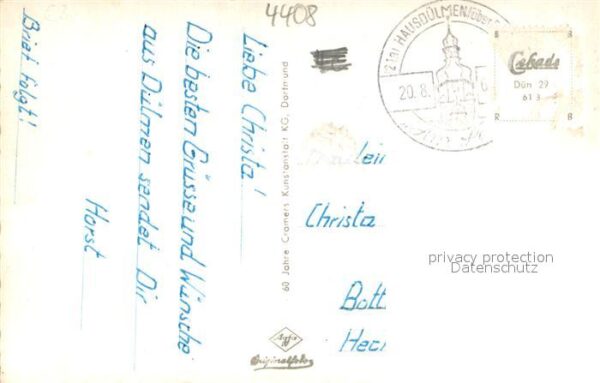 4408
Liebe Christa!
Die besten Grüsse und Wünsche
aus Dülmen sendet Dir
Horst
Brief folgt!
60 Jahre Cramers Kunstanstalt KG, Dortmund
Agfa
Originalfoto
(21b) HAUSDÜLMEN über
20.8.
Cekade
Dün 29
61 3
B
B
R
B
Christa
Bott
privacy protection
Datenschutz